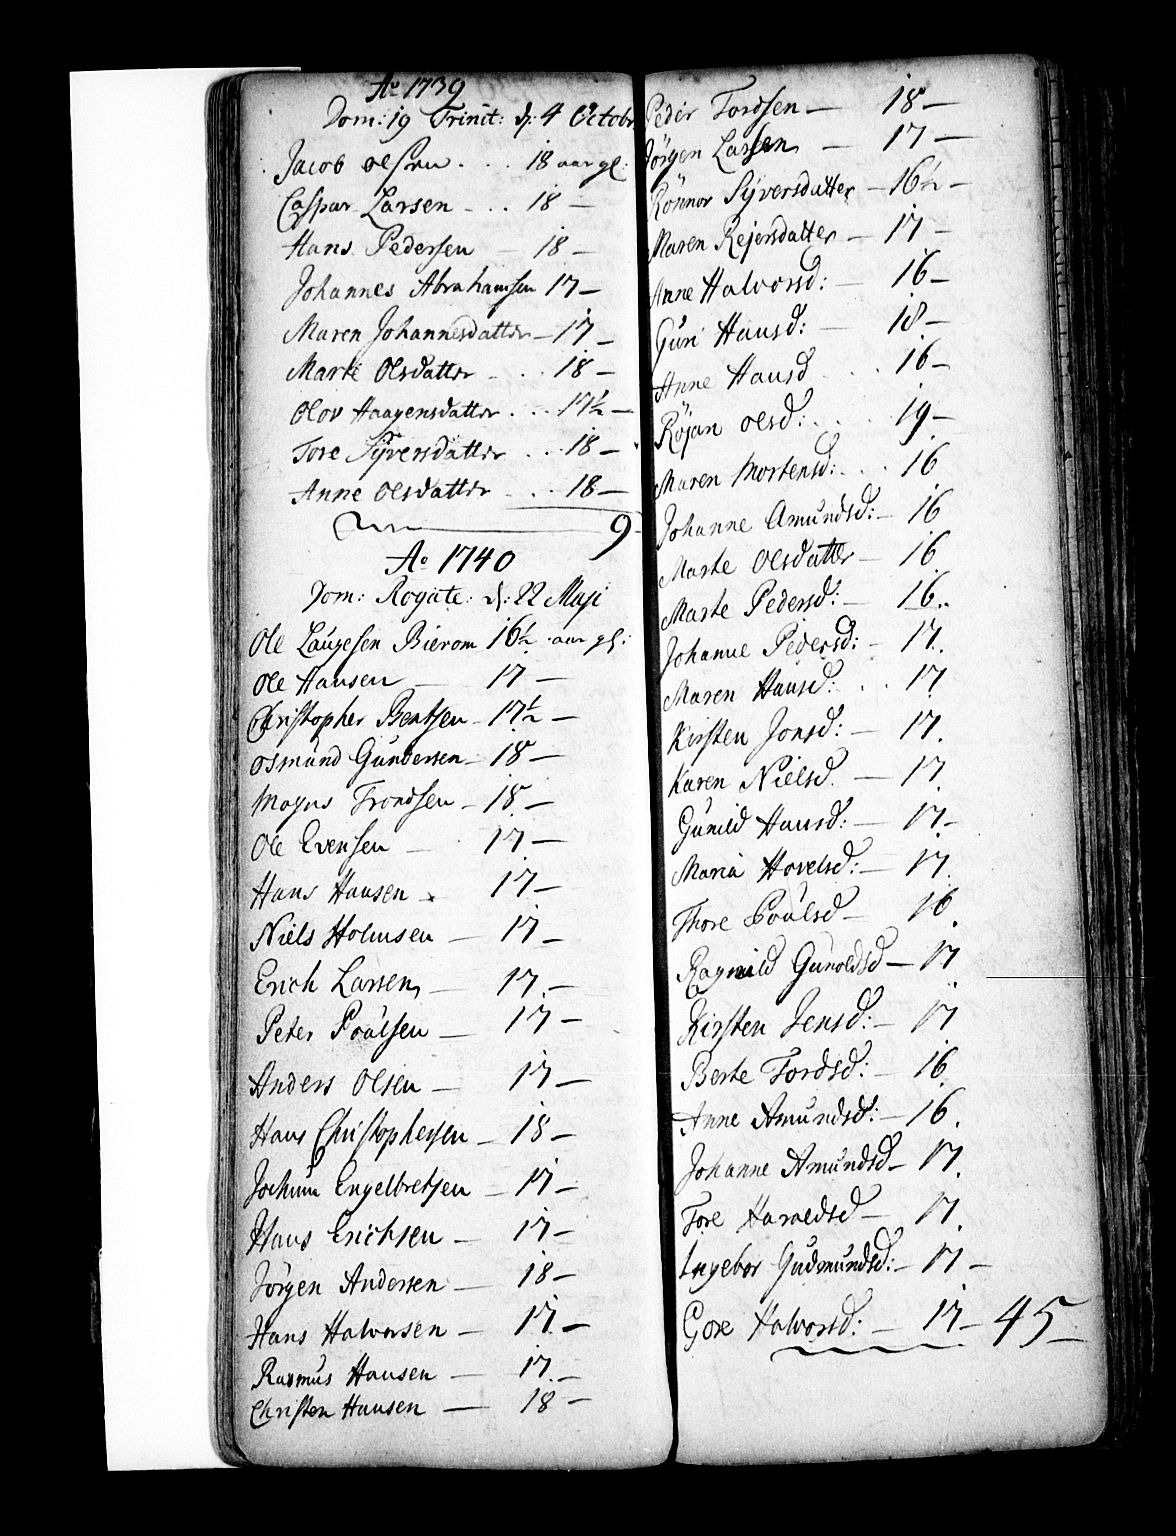 Ao 1739
Dom: 19 Trinit: d: 4 Octobr
Jacob Olsen . . . 18 aar gl:
Caspar Larsen - . . 18 -
Hans Pedersen - 18 -
Johannes Abrahamsen 17 -
Maren Johannesdatter - 17 -
Marte Olsdatter - . . 18 -
Olov Haagensdatter . . . 17½ -
Tore Syversdatter . . . 18 -
Anne Olsdatter - . . 18 -
9
Ao 1740
Dom: Rogate: d: 22 Maji
Ole Laugesen Bierom 16½ aar gl:
Ole Hansen - 17 -
Christopher Bentsen - 17½ -
Osmund Gundersen - 18 -
Mogns Trondsen - 18 -
Ole Evensen - 17 -
Hans Hansen - 17 -
Niels Holmsen - 17 -
Erich Larsen - 17 -
Peter Poulsen - 17 -
Anders Olsen - 17 -
Hans Christophersen - 18 -
Jochum Engelbretsen - 17 -
Hans Erichsen - 17 -
Jörgen Andersen - 18 -
Hans Halvorsen - 17 -
Rasmus Hansen - 17 -
Christen Hansen - 18 -
Peder Tordsen - 18 -
Jörgen Larsen - 17 -
Rönnor Syversdatter - 16½ -
Maren Rejersdatter - 17 -
Anne Halvorsd: - 16 -
Guri Hansd: - 18 -
Anne Hansd . . . 16 -
Röjan Olsd: . . . 19 -
Maren Mortensd: . . . 16
Johanne Amundsd: - 16
Marte Olsdatter - 16
Marte Pedersd: - 16
Johanne Pedersd: - 17.
Maren Hansd: . . 17
Kirsten Jonsd: - 17.
Karen Nielsd. - 17
Gunild Hansd: - 17 -
Maria Hovelsd: - 17.
Thore Poulsd - 16.
Ragnild Gunoldsd - 17
Kirsten Jensd: - 17
Berte Tordsd: - 16
Anne Amundsd: - 16.
Johanne Amundsd - 17.
Tore Haroldsd - 17.
Ingebor Gudmundsd: - 17 -
Gore Halvorsd: - 17 - 45 -